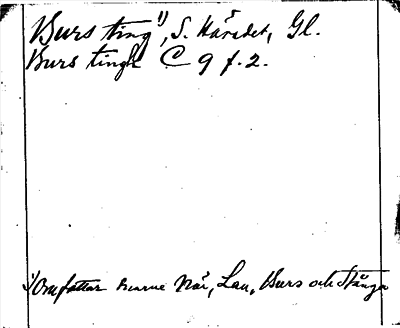 Burs ting 1), S. Häradet, Gl.
Burs tingh C 9 f. 2.
1) Omfattar socknarne När, Lau, Burs och Stånga